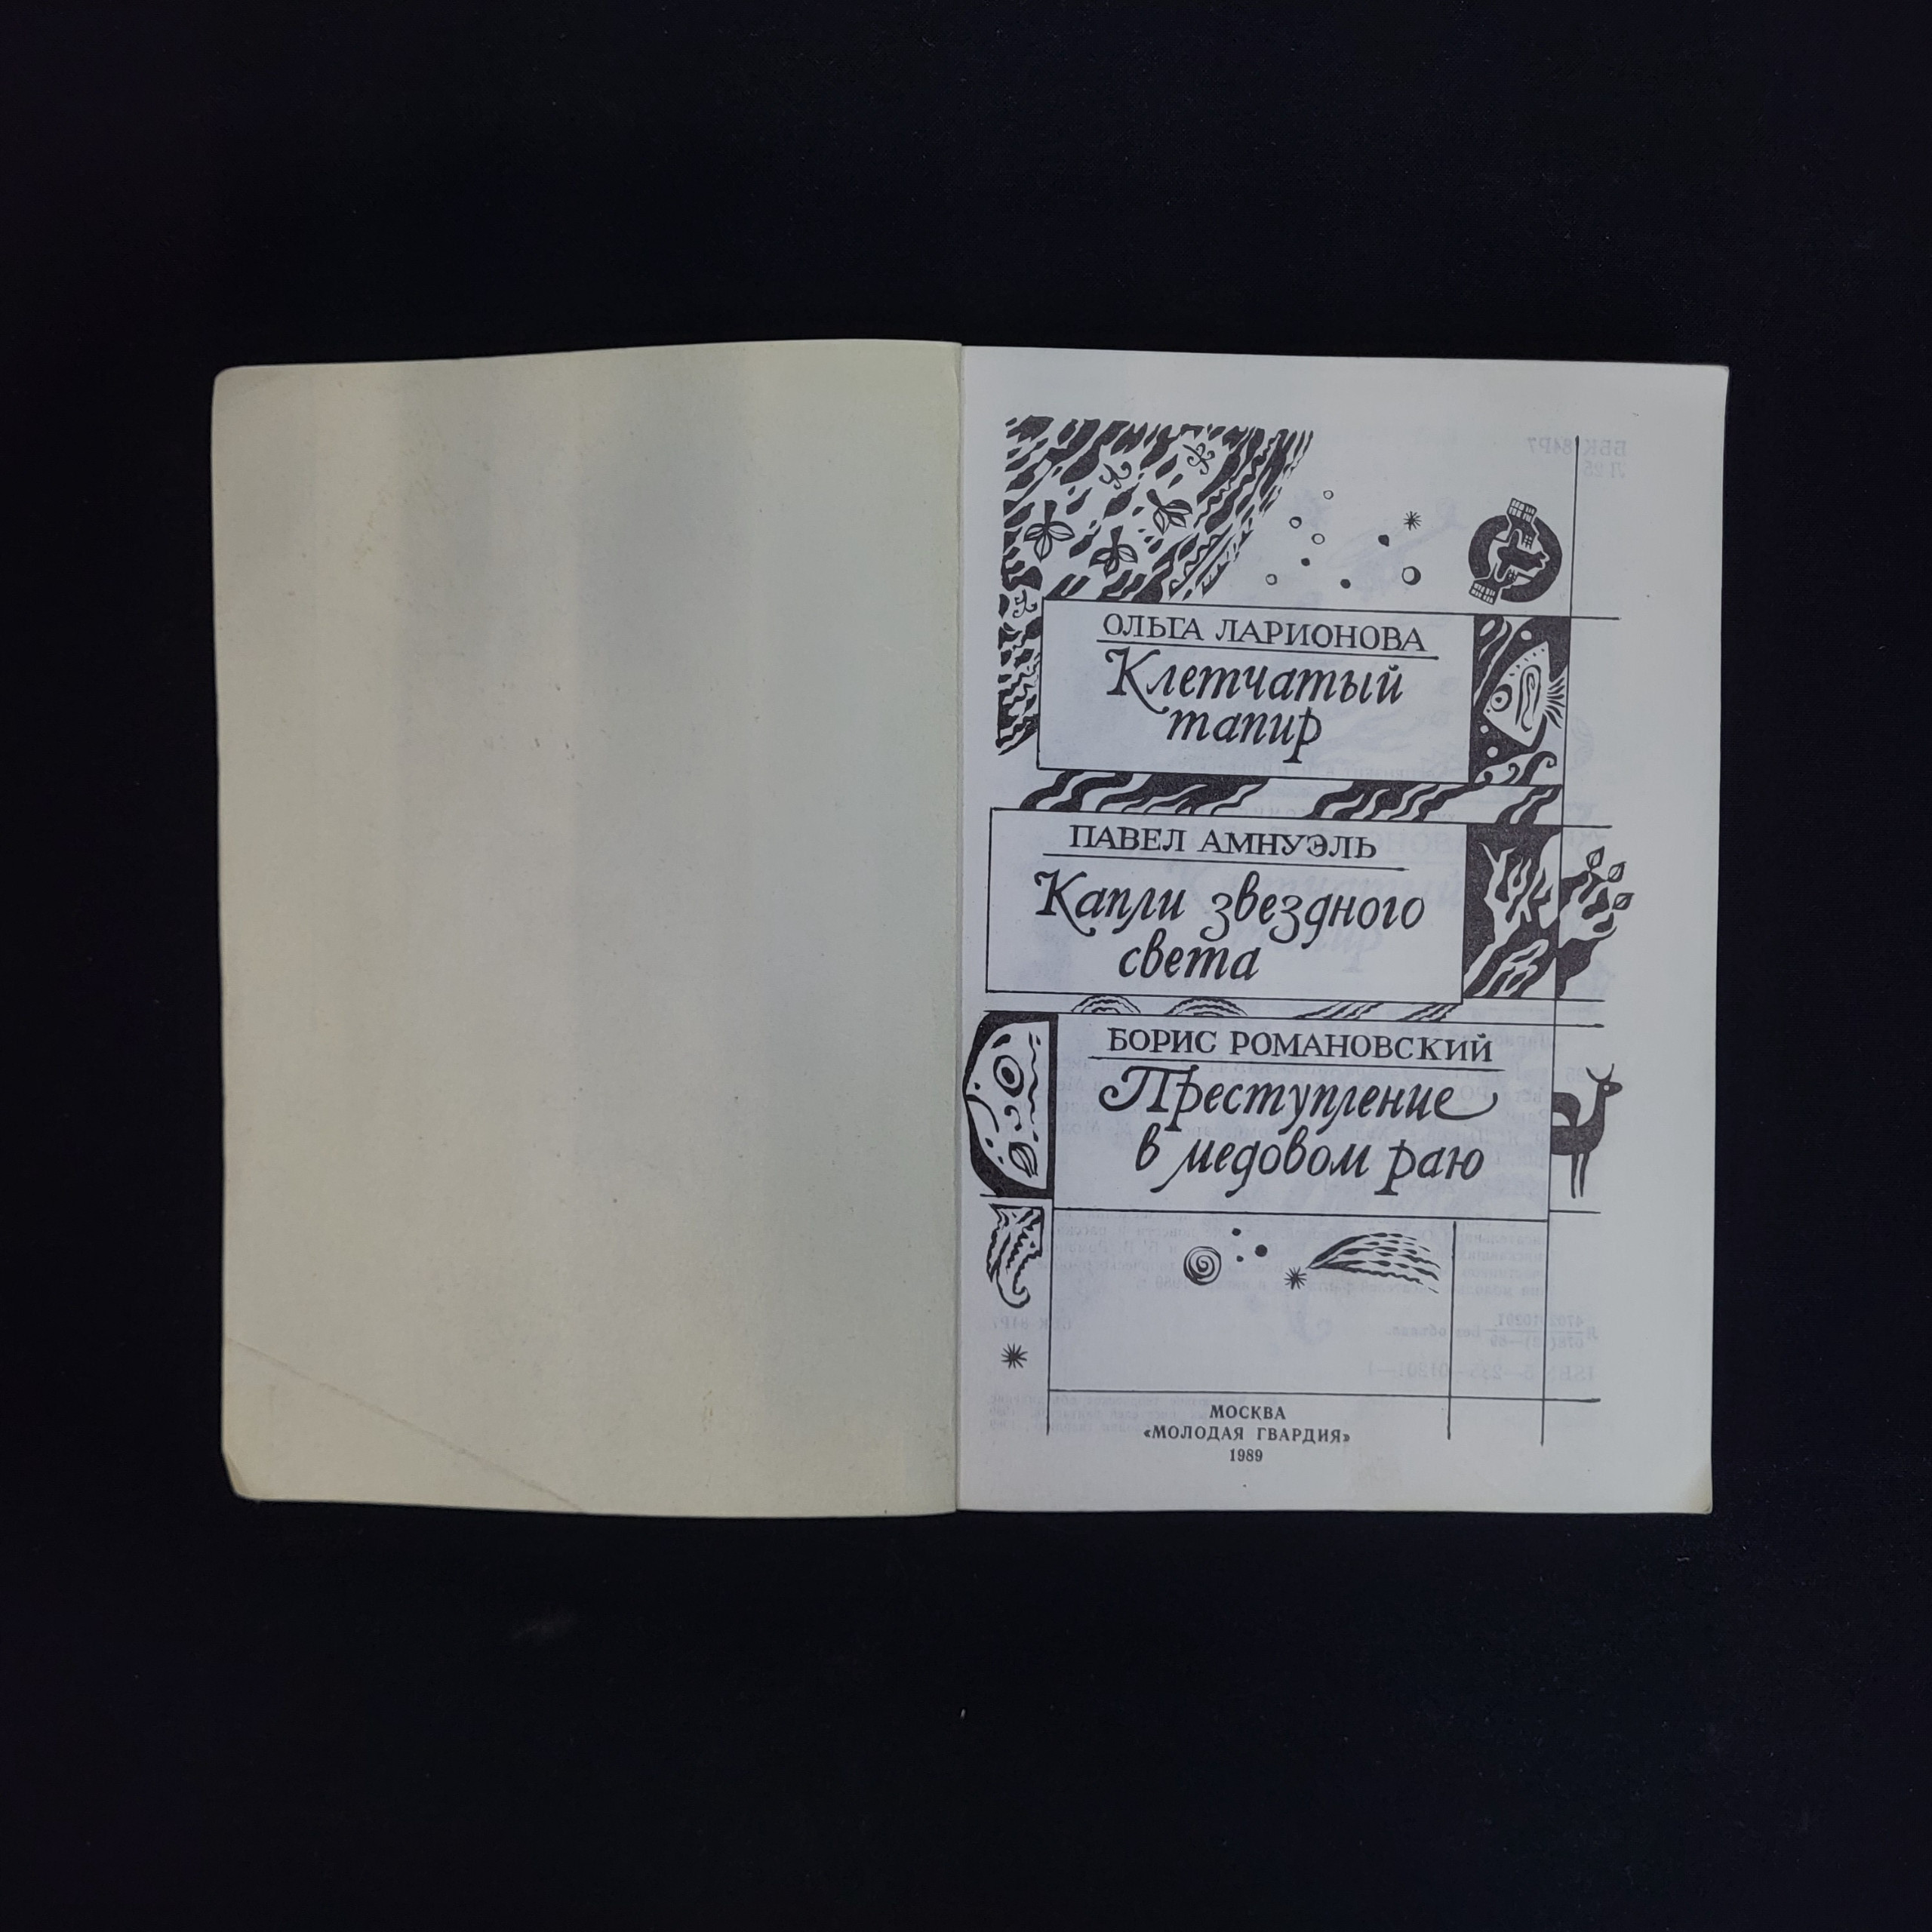 ОЛЬГА ЛАРИОНОВА
Клетчатый
тапир
ПАВЕЛ АМНУЭЛЬ
Капли звездного
света
БОРИС РОМАНОВСКИЙ
Преступление
в медовом раю
МОСКВА
«МОЛОДАЯ ГВАРДИЯ»
1989